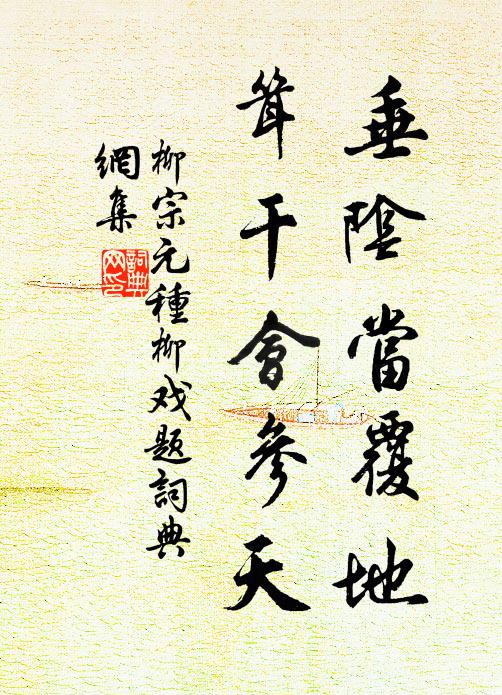 垂陰當覆地
耸干會參天
柳宗元種柳戏題詞典
網集
詞典
网印